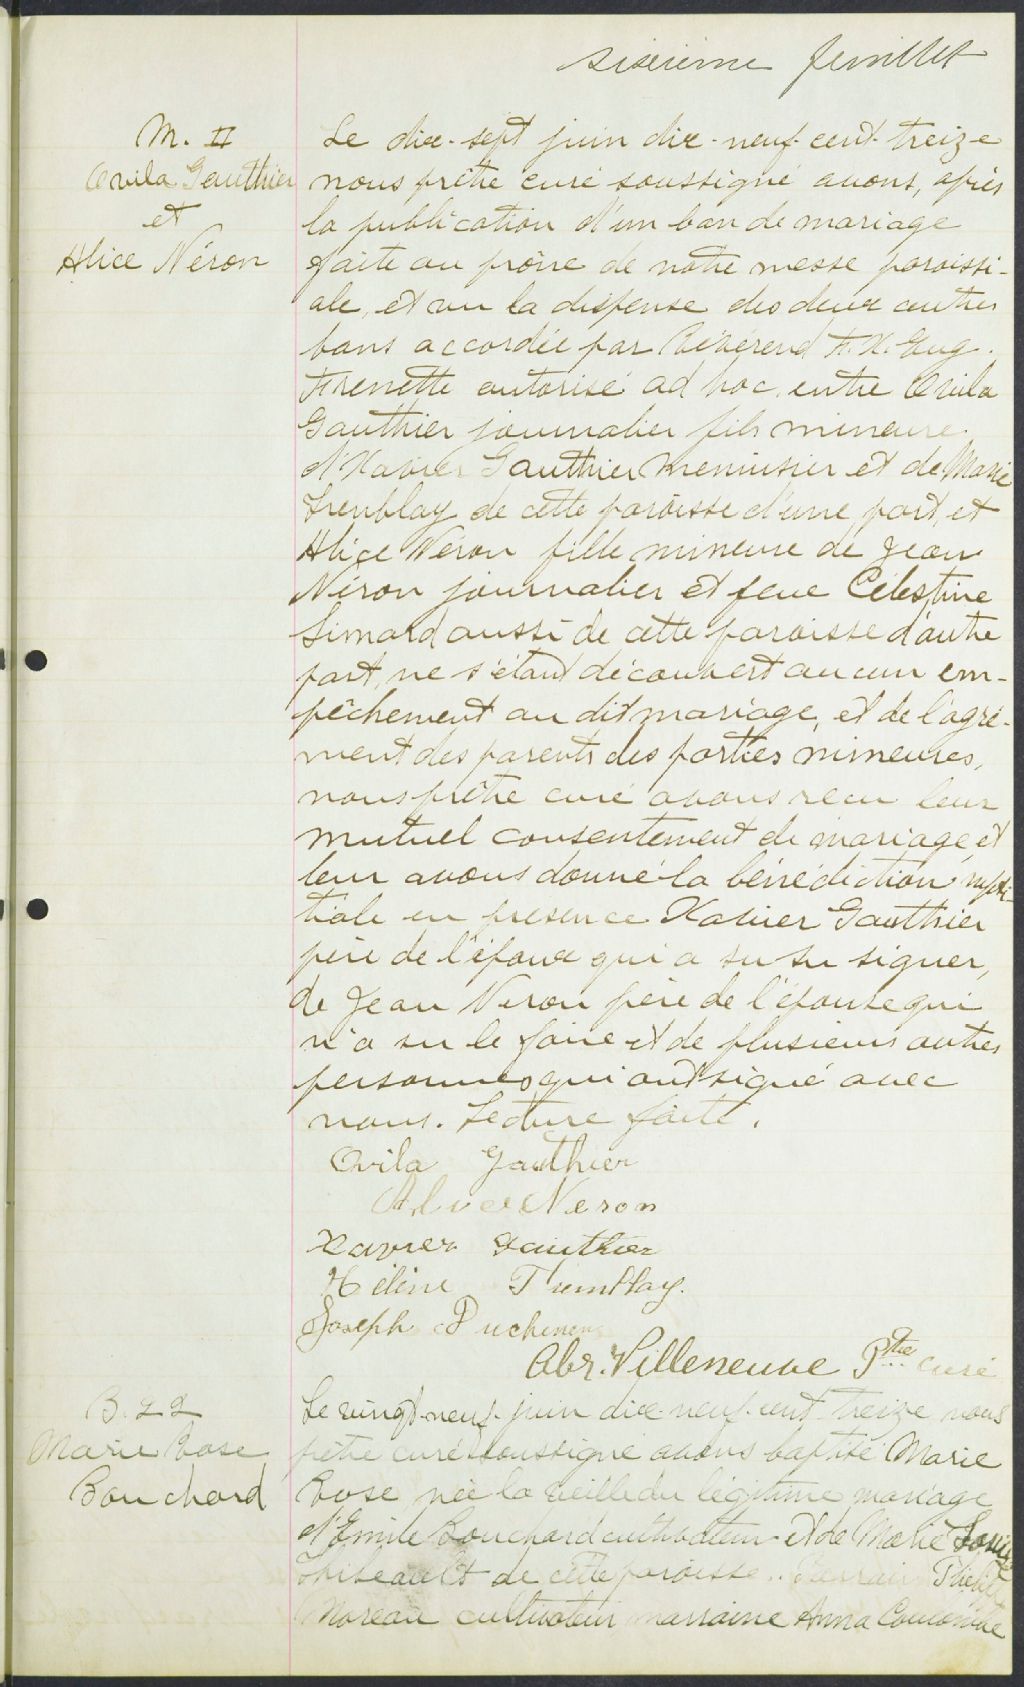 sixième feuillet
M. II
Ovila Gauthier
et
Alice Néron
Le dix-sept juin dix-neuf-cent-treize
nous prêtre curé soussigné avons, après
la publication d'un ban de mariage
faite au prône de notre messe paroissi-
ale, et vu la dispense des deux autres
bans accordée par Révérend F.X. Eug.
Frenette autorisé ad hoc, entre Ovila
Gauthier journalier fils mineure
d'Xavier Gauthier menuisier et de Marie
Tremblay de cette paroisse d'une part, et
Alice Néron fille mineure de Jean
Néron journalier et feue Célestine
Simard aussi de cette paroisse d'autre
part, ne s'étant découvert aucun em-
pêchement au dit mariage, et de l'agré-
ment des parents des parties mineures,
nous prêtre curé avons reçu leur
mutuel consentement de mariage, et
leur avons donné la bénédiction nupti-
tiale en présence Xavier Gauthier
père de l'époux qui a su su signer,
de Jean Neron père de l'épouse qui
n'a su le faire et de plusieurs autres
personnes qui ont signé avec
nous. Lecture faite.
Ovila Gauthier
Alice Neron
Xavier Gauthier
Hélène Tremblay.
Joseph
Abr. Villeneuve Ptre curé
B. 22
Marie Rose
Bouchard
Le vingt-neuf juin dix-neuf-cent-treize nous
prêtre curé soussigné avons baptisé Marie
Rose née la veille du légitime mariage
d'Emile Bouchard cultivateur et de Marie
Thibeault de cette paroisse.. Parrain
Moreau cultivateur, marraine Anna Coulombe